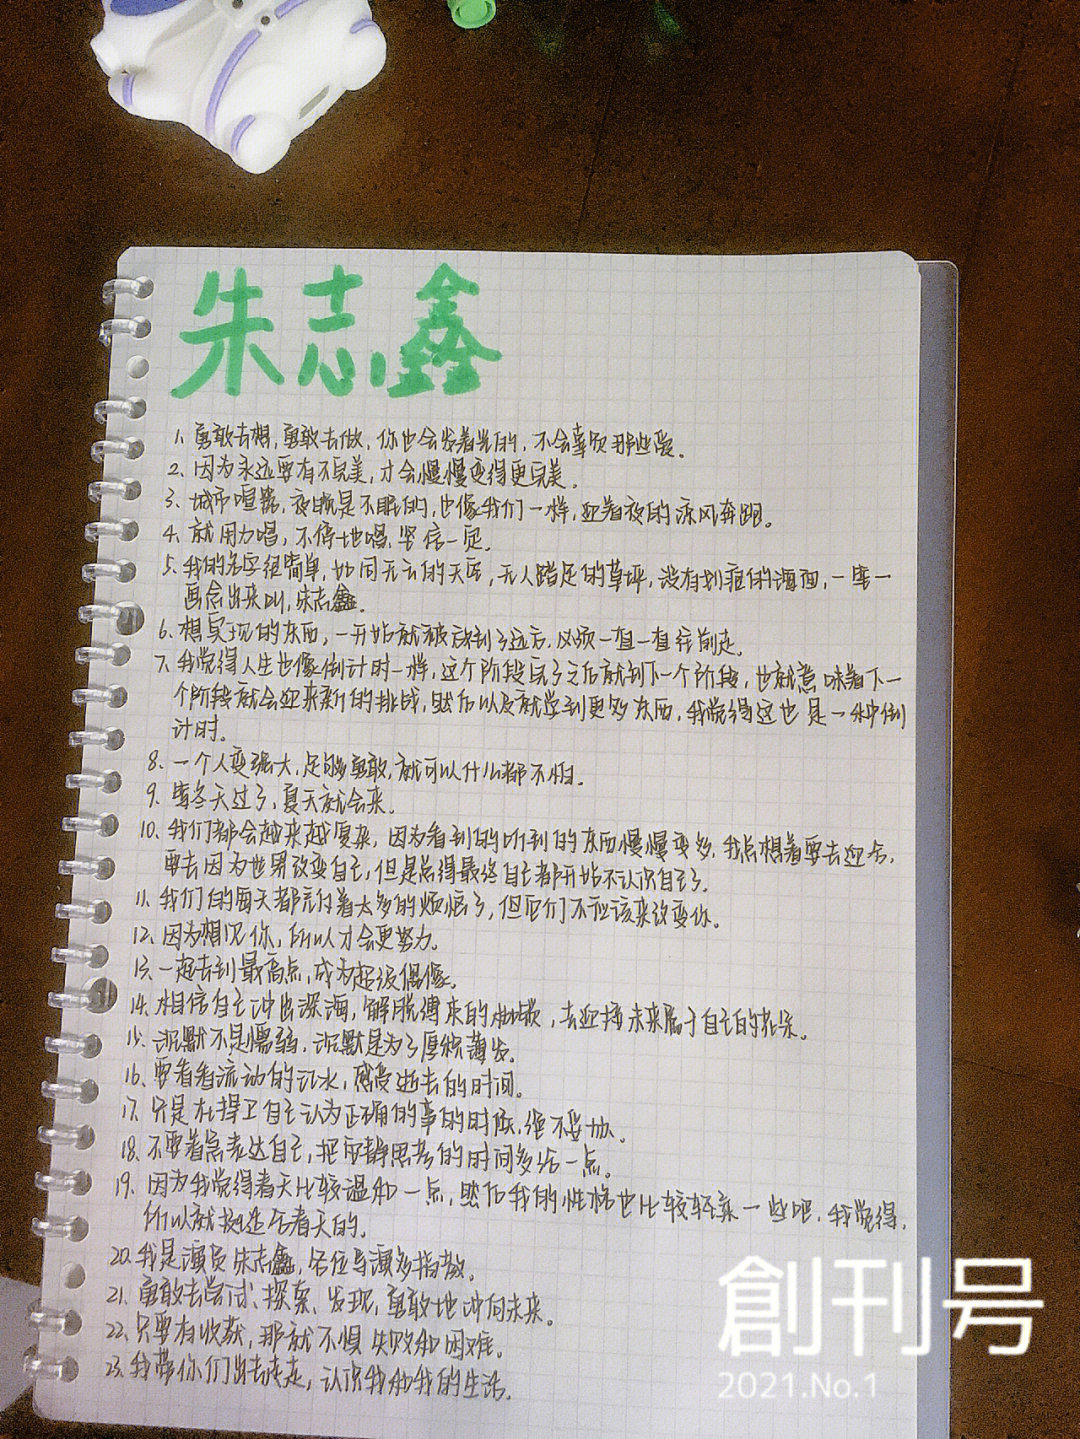 朱志鑫
1、勇敢去想,勇敢去做,你也会发着光的,不会辜负那些爱。
2、因为永远要有不完美,才会慢慢变得更完美。
3、城市喧嚣,夜晚是不眠的,也像我们一样,迎着夜的凉风奔跑。
4、就用力唱,不停地唱,坚信一定。
5、我的名字很简单,如同无云的天空,无人踏足的草坪,没有划痕的海面,一笔一
画念出来叫,朱志鑫。
6、想实现的东西,一开始就被放到了远方,必须一直一直往前走。
7、我觉得人生也像倒计时一样,这个阶段完了之后就到下一个阶段,也就意味着下一
个阶段就会迎来新的挑战,然后以及就学到更多东西,我觉得这也是一种倒
计时。
8、一个人变强大,足够勇敢,就可以什么都不怕。
9、等冬天过了,夏天就会来。
10、我们都会越来越复杂,因为看到的听到的东西慢慢变多,我总想着要去迎合,
要去因为世界改变自己,但是总得最终自己都开始不认识自己了。
11、我们的每天都充斥着太多的烦恼了,但它们不应该来改变你。
12、因为想见你,所以才会更努力。
13、一起去到最高点,成为超级偶像。
14、相信自己冲出深海,解脱缚束的枷锁,去迎接未来属于自己的花朵。
15、沉默不是懦弱,沉默是为了厚积薄发。
16、要看看流动的江水,感受逝去的时间。
17、只是在捍卫自己认为正确的事的时候,绝不妥协。
18、不要着急表达自己,把安静思考的时间多给一点。
19、因为我觉得春天比较温和一点,然后我的性格也比较轻柔一些吧,我觉得,
所以就挺适合春天的。
20、我是演员朱志鑫,各位导演多指教。
21、勇敢去尝试、探索、发现,勇敢地冲向未来。
22、只要有收获,那就不惧失败和困难。
23、我带你们出去走走,认识我和我的生活。
創刊号
2021.No.1